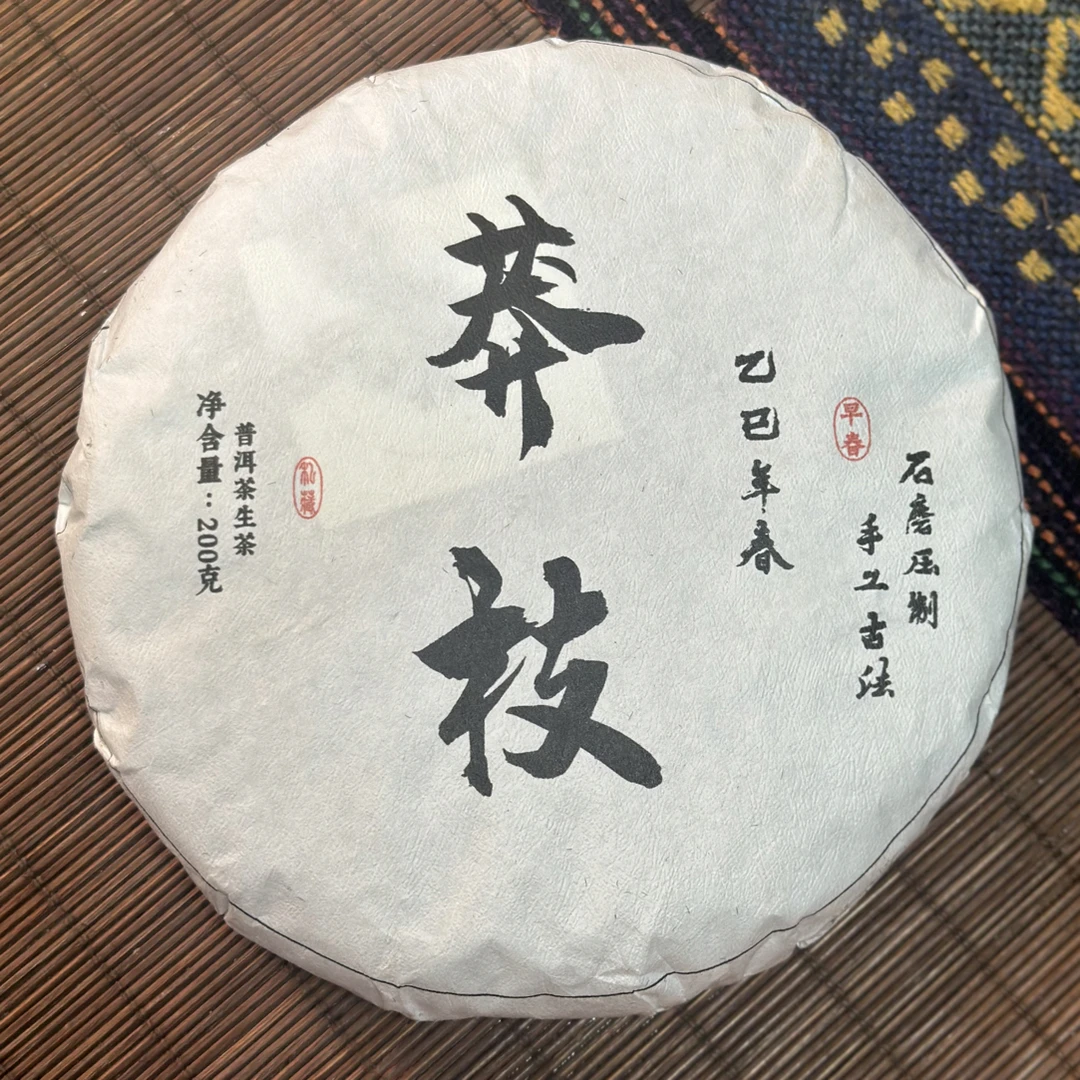 石磨压制
手工古法
早春
乙巳年春
莽枝
私藏
普洱茶生茶
净含量：200克